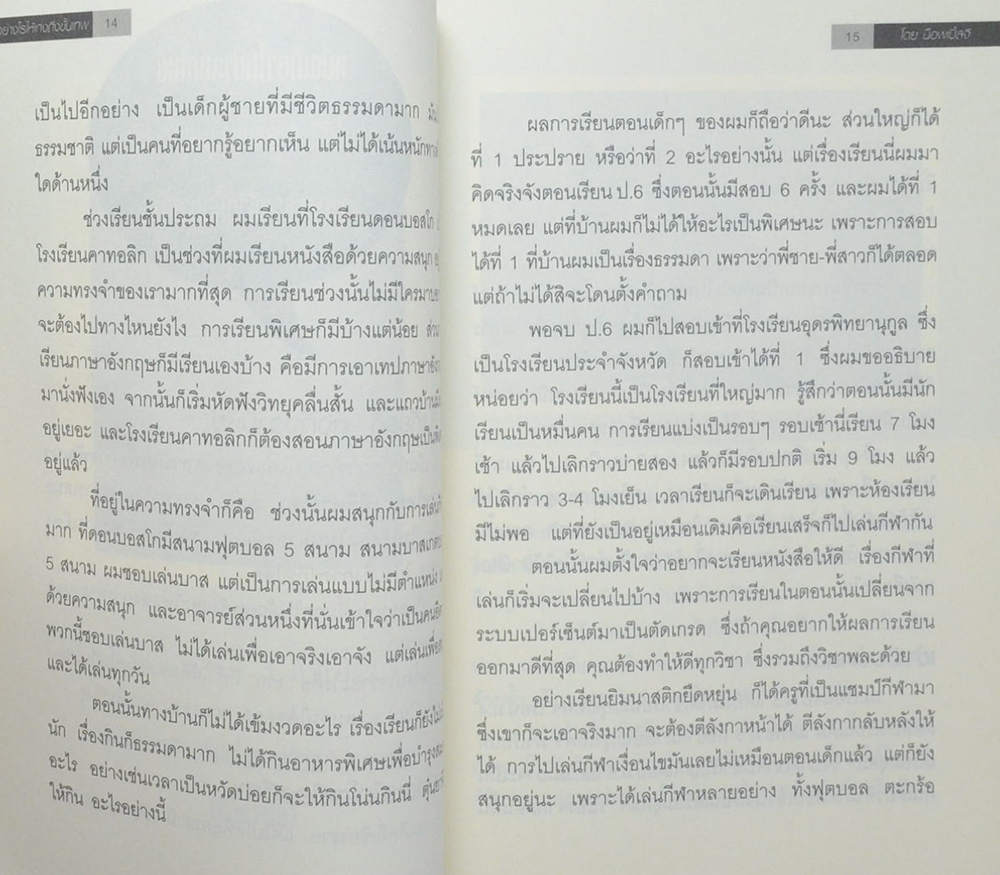 อย่างไรให้เก่งถึงขั้นเทพ 14
เป็นไปอีกอย่าง เป็นเด็กผู้ชายที่มีชีวิตธรรมดามาก
ธรรมชาติ แต่เป็นคนที่อยากรู้อยากเห็น แต่ไม่ได้เน้นหนัก
ใดด้านหนึ่ง
ช่วงเรียนชั้นประถม ผมเรียนที่โรงเรียนดอนบอสโก
โรงเรียนคาทอลิก เป็นช่วงที่ผมเรียนหนังสือด้วยความสนุก
ความทรงจำของเรามากที่สุด การเรียนช่วงนั้นไม่มีใคร
จะต้องไปทางไหนยังไง การเรียนพิเศษก็มีบ้างแต่น้อย
เรียนภาษาอังกฤษก็มีเรียนเองบ้าง คือมีการเอาเทป
มานั่งฟังเอง จากนั้นก็เริ่มหัดฟังวิทยุคลื่นสั้น และแถวบ้าน
อยู่เยอะ และโรงเรียนคาทอลิกก็ต้องสอนภาษาอังกฤษ
อยู่แล้ว
ที่อยู่ในความทรงจำก็คือ ช่วงนั้นผมสนุกกับการ
มาก ที่ดอนบอสโกมีสนามฟุตบอล 5 สนาม
5 สนาม ผมชอบเล่นบาส แต่เป็นการเล่นแบบไม่มีตำแหน่ง
ด้วยความสนุก และอาจารย์ส่วนหนึ่งที่นั่นเข้าใจว่าเป็น
พวกนี้ชอบเล่นบาส ไม่ได้เล่นเพื่อเอาจริงเอาจัง
และได้เล่นทุกวัน
ตอนนั้นทางบ้านก็ไม่ได้เข้มงวดอะไร เรื่องเรียนก็ยัง
นัก เรื่องกินก็ธรรมดามาก ไม่ได้กินอาหารพิเศษเพื่อบำรุง
อะไร อย่างเช่นเวลาเป็นหวัดบ่อยก็จะให้กินโน่นกินนี่
ให้กิน อะไรอย่างนี้
15 โดย น๊อพเปิ้ลจี
ผลการเรียนตอนเด็กๆ ของผมก็ถือว่าดีนะ ส่วนใหญ่ก็ได้
ที่ 1 ประปราย หรือว่าที่ 2 อะไรอย่างนั้น แต่เรื่องเรียนนี่ผมมา
คิดจริงจังตอนเรียน ป.6 ซึ่งตอนนั้นมีสอบ 6 ครั้ง และผมได้ที่ 1
หมดเลย แต่ที่บ้านผมก็ไม่ได้ให้อะไรเป็นพิเศษนะ เพราะการสอบ
ได้ที่ 1 ที่บ้านผมเป็นเรื่องธรรมดา เพราะว่าพี่ชาย-พี่สาวก็ได้ตลอด
แต่ถ้าไม่ได้สิจะโดนตั้งคำถาม
พอจบ ป.6 ผมก็ไปสอบเข้าที่โรงเรียนอุดรพิทยานุกูล ซึ่ง
เป็นโรงเรียนประจำจังหวัด ก็สอบเข้าได้ที่ 1 ซึ่งผมขออธิบาย
หน่อยว่า โรงเรียนนี้เป็นโรงเรียนที่ใหญ่มาก รู้สึกว่าตอนนั้นมีนัก
เรียนเป็นหมื่นคน การเรียนแบ่งเป็นรอบๆ รอบเช้านี่เรียน 7 โมง
เช้า แล้วไปเลิกราวบ่ายสอง แล้วก็มีรอบปกติ เริ่ม 9 โมง แล้ว
ไปเลิกราว 3-4 โมงเย็น เวลาเรียนก็จะเดินเรียน เพราะห้องเรียน
มีไม่พอ แต่ที่ยังเป็นอยู่เหมือนเดิมคือเรียนเสร็จก็ไปเล่นกีฬากัน
ตอนนั้นผมตั้งใจว่าอยากจะเรียนหนังสือให้ดี เรื่องกีฬาที่
เล่นก็เริ่มจะเปลี่ยนไปบ้าง เพราะการเรียนในตอนนั้นเปลี่ยนจาก
ระบบเปอร์เซ็นต์มาเป็นตัดเกรด ซึ่งถ้าคุณอยากให้ผลการเรียน
ออกมาดีที่สุด คุณต้องทำให้ดีทุกวิชา ซึ่งรวมถึงวิชาพละด้วย
อย่างเรียนยิมนาสติกยืดหยุ่น ก็ได้ครูที่เป็นแชมป์กีฬามา
ซึ่งเขาก็จะเอาจริงมาก จะต้องตีลังกาหน้าได้ ตีลังกากลับหลังให้
ได้ การไปเล่นกีฬาเงื่อนไขมันเลยไม่เหมือนตอนเด็กแล้ว แต่ก็ยัง
สนุกอยู่นะ เพราะได้เล่นกีฬาหลายอย่าง ทั้งฟุตบอล ตะกร้อ